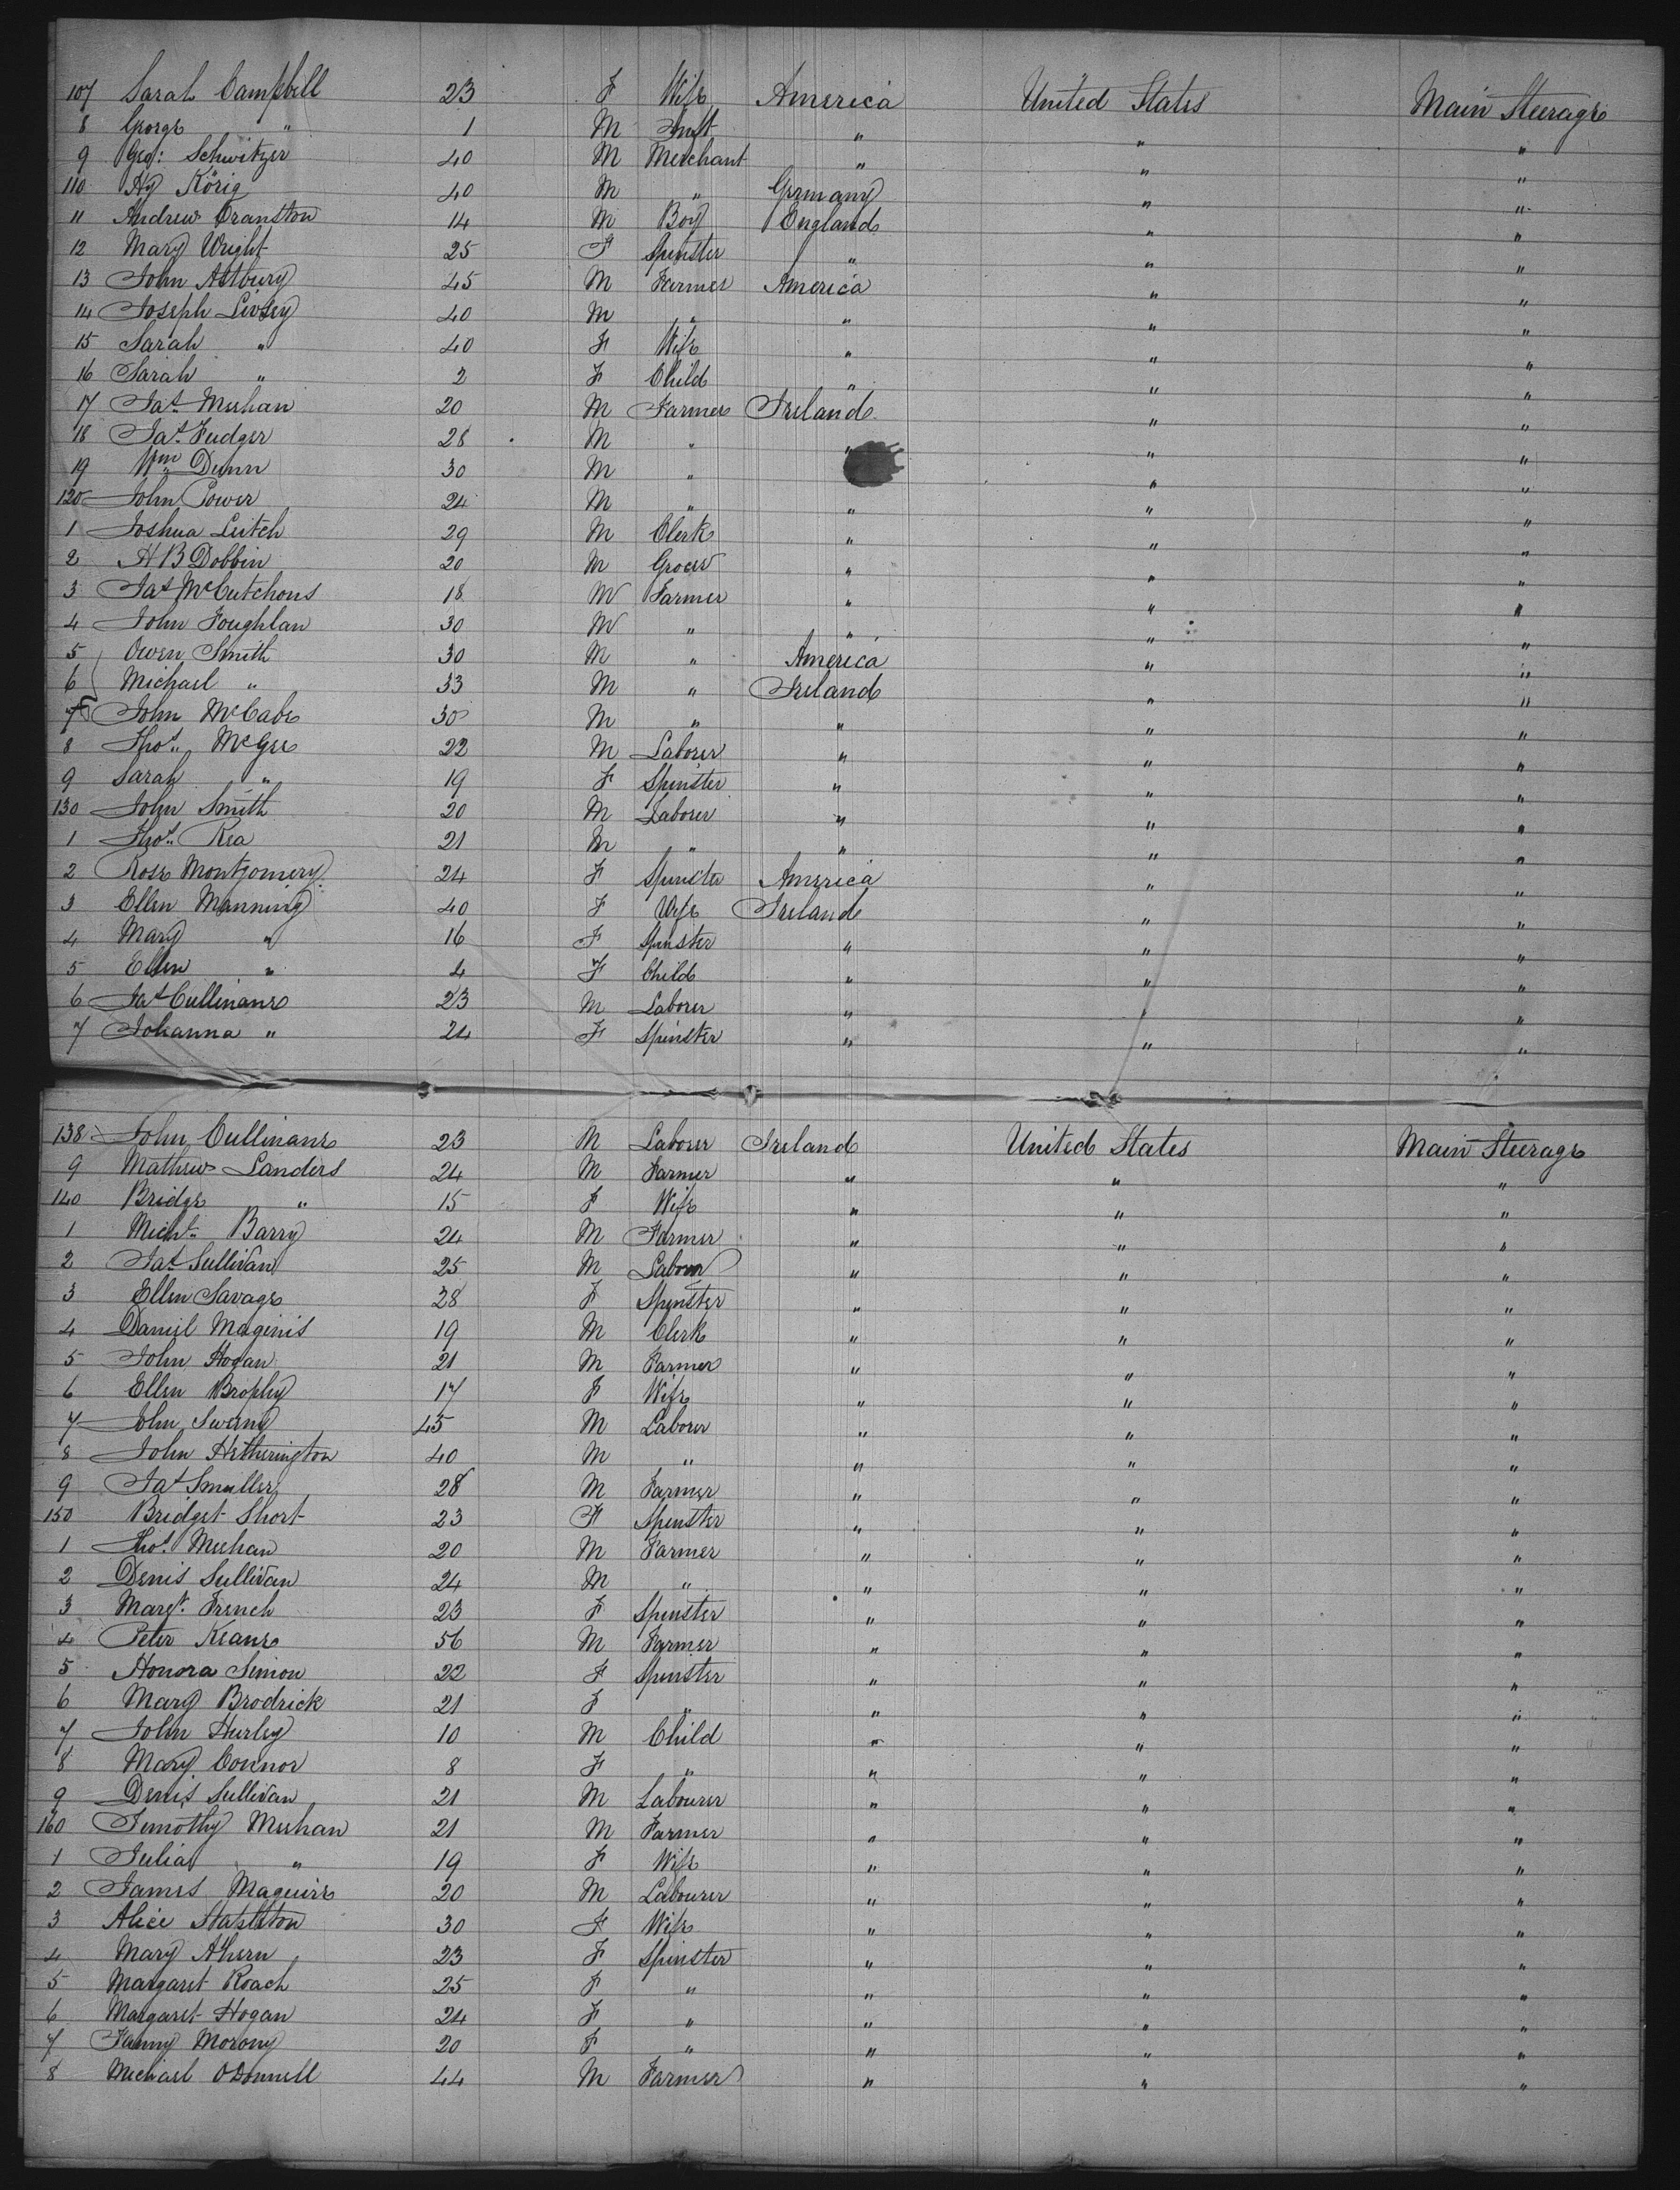 107 Sarah Campbell 23 F Wife America United States Main Steerage
8 George " 1 M Inft " " "
9 Geo: Schwitzer 40 M Merchant " " "
110 Hy Körig 40 M " Germany " "
11 Andrew Cranston 14 M Boy England " "
12 Mary Wright 25 F Spinster " " "
13 John Astbury 45 M Farmer America " "
14 Joseph Livsey 40 M " " " "
15 Sarah " 40 F Wife " " "
16 Sarah " 2 F Child " " "
17 Jas Meehan 20 M Farmer Ireland " "
18 Jas Fudger 28 M " " " "
19 Wm Dunn 30 M " " "
120 John Power 24 M " " " "
1 Joshua Leitch 29 M Clerk " " "
2 H B Dobbin 20 M Grocer " " "
3 Jas McCutchons 18 M Farmer " " "
4 John Foughlan 30 M " " " "
5 Owen Smith 30 M " America " "
6 Michael " 33 M " Ireland " "
7 John McCabe 30 M " " " "
8 Thos McGee 22 M Laborer " " "
9 Sarah " 19 F Spinster " " "
130 John Smith 20 M Laborer " " "
1 Thos Rea 21 M " " " "
2 Rose Montgomery 24 F Spinster America " "
3 Ellen Manning 40 F Wife Ireland " "
4 Mary " 16 F Spinster " " "
5 Ellen " 4 F Child " " "
6 Jas Cullinane 23 M Laborer " " "
7 Johanna " 24 F Spinster " " "
138 John Cullinane 23 M Laborer Ireland United States Main Steerage
9 Mathew Landers 24 M Farmer " " "
140 Bridge " 15 F Wife " " "
1 Michl Barry 24 M Farmer " " "
2 Jas Sullivan 25 M Laborer " " "
3 Ellen Savage 28 F Spinster " " "
4 Daniel Maginis 19 M Clerk " " "
5 John Hogan 21 M Farmer " " "
6 Ellen Brophy 17 F Wife " " "
7 John Swany 45 M Laborer " " "
8 John Hetherington 40 M " " " "
9 Jas Smuller 28 M Farmer " " "
150 Bridget Short 23 F Spinster " " "
1 Thos Meehan 20 M Farmer " " "
2 Denis Sullivan 24 M " " " "
3 Margt French 23 F Spinster " " "
4 Peter Keane 56 M Farmer " " "
5 Honora Simon 22 F Spinster " " "
6 Mary Brodrick 21 F " " " "
7 John Hurley 10 M Child " " "
8 Mary Connor 8 F " " " "
9 Denis Sullivan 21 M Labourer " " "
160 Timothy Meehan 21 M Farmer " " "
1 Julia " 19 F Wife " " "
2 James Maguire 20 M Labourer " " "
3 Alice Stapleton 30 F Wife " " "
4 Mary Ahern 23 F Spinster " " "
5 Margaret Roach 25 F " " " "
6 Margaret Hogan 24 F " " " "
7 Fanny Morony 20 F " " " "
8 Michael ODonnell 44 M Farmer " " "